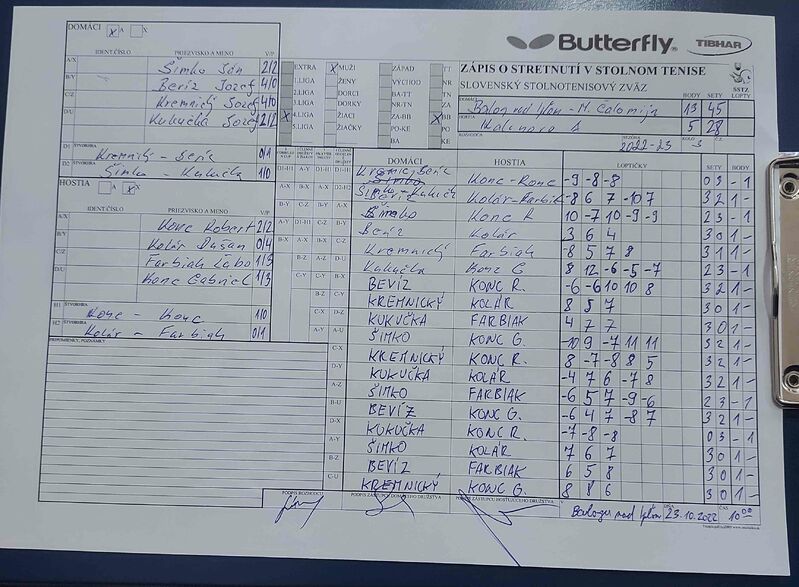 DOMÁCI X A X
Butterfly® TIBHAR
IDENT.ČÍSLO PRIEZVISKO A MENO V/P
ZÁPIS O STRETNUTÍ V STOLNOM TENISE
SLOVENSKÝ STOLNOTENISOVÝ ZVÄZ
SSTZ LOPTY
A/X Šimko Ján 2/2
B/Y Bevíz Jozef 4/0
C/Z Kremnický Jozef 4/0
D/U Kukučka Jozef 2/2
EXTRA X MUŽI ZÁPAD TT
1.LIGA ŽENY VÝCHOD NR
2.LIGA DORCI BA-TT TN
3.LIGA DORKY NR-TN ZA
X 4.LIGA ŽIACI ZA-BB X BB
5.LIGA ŽIAČKY PO-KE PO
BA KE
DOMÁCI BODY SETY
Balog nad Ipľom - M. Čalomija 13 45
HOSTIA
5 28
ROZHODCA SEZÓNA KOLO Č.Z.
2022-23
D1 ŠTVORHRA Kremnický - Bevíz 0/1
D2 ŠTVORHRA Šimko - Kukučka 1/0
HOSTIA A X X
IDENT.ČÍSLO PRIEZVISKO A MENO V/P
A/X Konc Robert 2/2
B/Y Kolár Dušan 0/4
C/Z Farbiak Ľubo 1/3
D/U Konc Gabriel 1/3
H1 ŠTVORHRA Konc - Konc 1/0
H2 ŠTVORHRA Kolár - Farbiak 0/1
PRIPOMIENKY, POZNÁMKY
DOMÁCI HOSTIA LOPTIČKY SETY BODY
Kremnic, Bevíz Konc - Konc -9 -8 -8 0 3 - 1
Šimko - Kukučka Kolár - Farbiak -8 6 7 -10 7 3 2 1 -
Šimko Konc R 10 -7 10 -9 -9 2 3 - 1
Bevíz Kolár 3 6 4 3 0 1 -
Kremnický Farbiak -8 5 7 8 3 1 1 -
Kukučka Konc G 8 12 -6 -5 -7 2 3 - 1
BEVÍZ KONC R. -6 -6 10 10 8 3 2 1 -
KREMNICKÝ KOLÁR 8 5 7 3 0 1 -
KUKUČKA FARBIAK 4 7 7 3 0 1 -
ŠIMKO KONC G. -10 9 -7 11 11 3 2 1 -
KREMNICKÝ KONC R. 8 -7 -8 8 5 3 2 1 -
KUKUČKA KOLÁR -4 7 6 -7 8 3 2 1 -
ŠIMKO FARBIAK -6 5 7 -9 -6 2 3 - 1
BEVÍZ KONC G. -6 4 7 -8 7 3 2 1 -
KUKUČKA KONC R. -7 -8 -8 0 3 - 1
ŠIMKO KOLÁR 7 6 7 3 0 1 -
BEVÍZ FARBIAK 6 5 8 3 0 1 -
KREMNICKÝ KONC G. 8 8 6 3 0 1 -
PODPIS ROZHODCU PODPIS ZÁSTUPCU DOMÁCEHO DRUŽSTVA PODPIS ZÁSTUPCU HOSŤUJÚCEHO DRUŽSTVA
V Balogu nad Ipľom DŇA 23.10.2022 ČAS 10⁰⁰